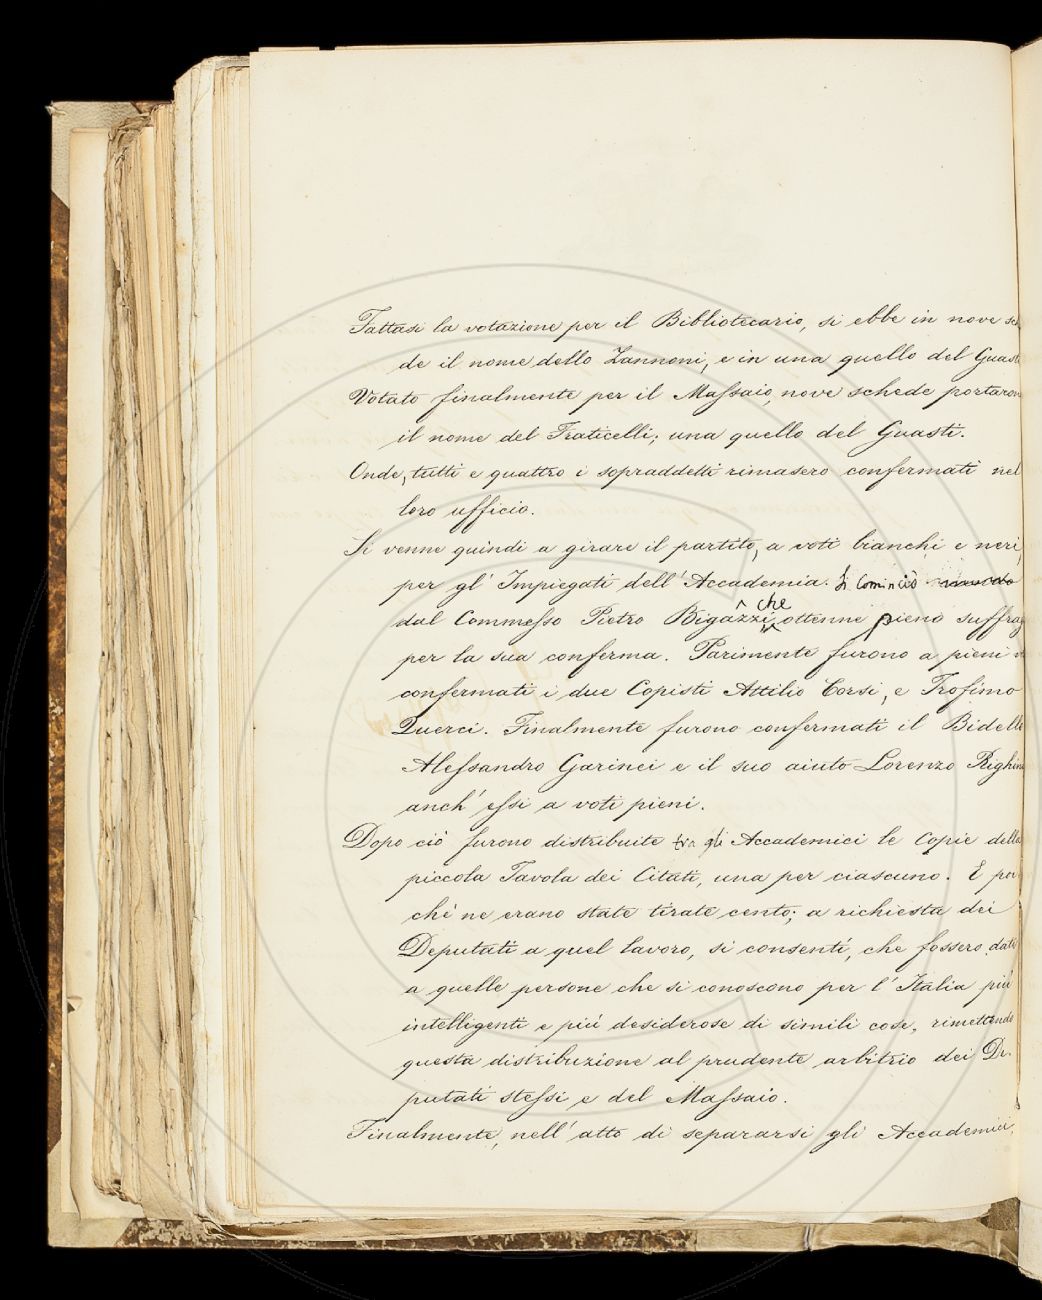 Fattasi la votazione per il Bibliotecario, si ebbe in nove sc
de il nome dello Zannoni, e in una quello del Guasti
Votato finalmente per il Massaio, nove schede portaron
il nome del Fraticelli; una quello del Guasti.
Onde, tutti e quattro i sopraddetti rimasero confermati nel
loro ufficio.
Si venne quindi a girare il partito, a voti bianchi e neri,
per gl' Impiegati dell' Accademia. Si cominciò
dal Commesso Pietro Bigazzi, che ottenne pieno suffrag
per la sua conferma. Parimente furono a pieni v
confermati i due Copisti Attilio Corsi, e Trofimo
Querci. Finalmente furono confermati il Bidello
Alessandro Garinei e il suo aiuto Lorenzo Righini
anch' essi a voti pieni.
Dopo ciò furono distribuite tra gli Accademici le Copie della
piccola Tavola dei Citati, una per ciascuno. E poi
chè ne erano state tirate cento; a richiesta dei
Deputati a quel lavoro, si consentì, che fossero date
a quelle persone che si conoscono per l' Italia più
intelligenti e più desiderose di simili cose, rimettendo
questa distribuzione al prudente arbitrio dei De-
putati stessi e del Massaio.
Finalmente, nell' atto di separarsi gli Accademici,